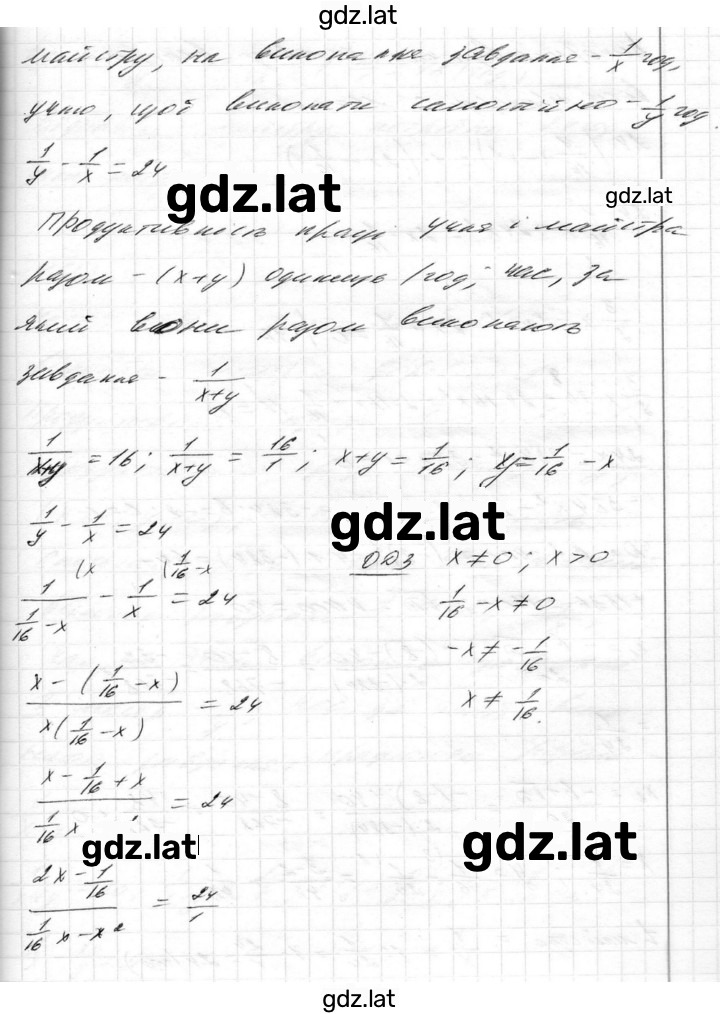 gdz.lat
майстру, на виконання завдання - 1/x год,
учню, щоб виконати самостійно - 1/y год.
1/y - 1/x = 24
gdz.lat
gdz.lat
Продуктивність праці учня і майстра
разом - (x+y) одиниць/год; час, за
який вони разом виконають
завдання - 1/(x+y)
1/(x+y) = 16; 1/(x+y) = 16/1; x+y = 1/16; y = 1/16 - x
1/y - 1/x = 24
gdz.lat
(x (1/16 - x
1/(1/16 - x) - 1/x = 24
ОДЗ x ≠ 0; x > 0
1/16 - x ≠ 0
-x ≠ -1/16
x ≠ 1/16.
(x - (1/16 - x))/(x(1/16 - x)) = 24
(x - 1/16 + x)/(1/16 x = 24
gdz.lat
gdz.lat
(2x - 1/16)/(1/16 x - x²) = 24/1
gdz.lat